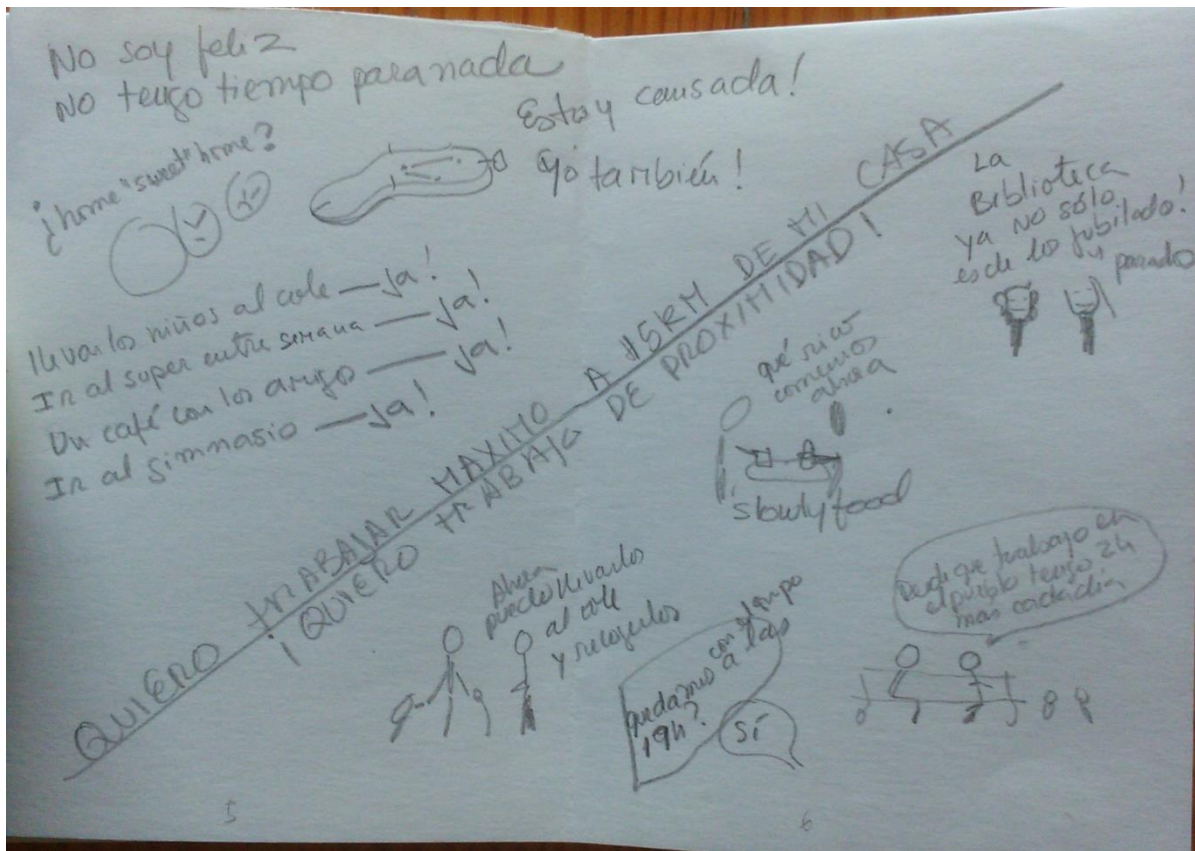 No soy feliz
No tengo tiempo para nada
Estoy cansada!
Yo también!
¿home "sweet" home?
llevar los niños al cole — Ja!
Ir al super entre semana — Ja!
Un café con los amigos — Ja!
Ir al gimnasio — Ja!
QUIERO trABAJAR MAXIMO A 15KM DE MI CASA
¡QUIERO trABAJO DE PROXIMIDAD!
La
Biblioteca
ya no sólo
es de los jubilado!
y parado
qué rico
comemos
ahora
slowly food
Ahora
puedo llevarlos
al cole
y recogerlos
quedamos con tiempo
a las
19h?
Sí
Desde que trabajo en
el pueblo tengo 2h
mas cada día
5
6